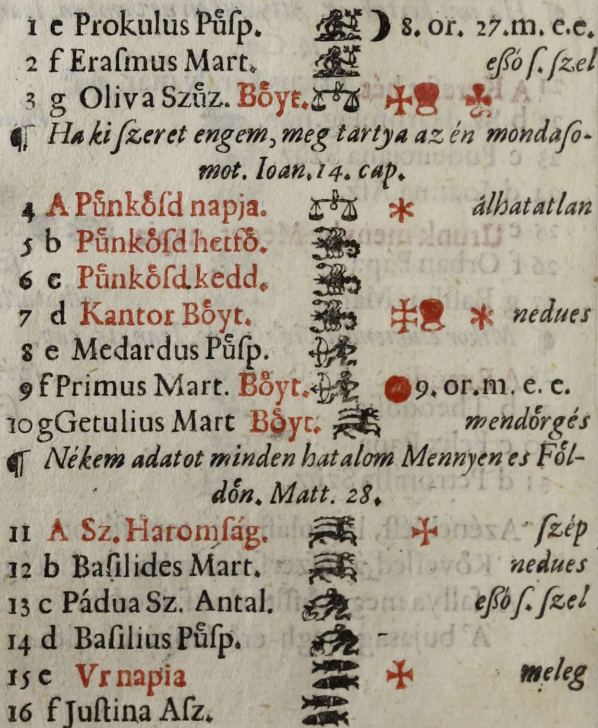 1 e Prokulus Pu̐ſp. ☽ 8. or. 27. m. e. e.
2 f Eraſmus Mart. eßó ſ. ſzel
3 g Oliva Szu̐z. Bo̊yt.
¶ Ha ki ſzeret engem, meg tartya az én mondaſo-
mot. Ioan. 14. cap.
4 A Pu̐nko̊ſd napja. álhatatlan
5 b Pu̐nko̊ſd hetfo̊.
6 c Pu̐nko̊ſd kedd.
7 d Kantor Bo̊yt. nedues
8 e Medardus Pu̐ſp.
9 f Primus Mart. Bo̊yt. 9. or. m. e. e.
10 g Getulius Mart Bo̊yt. mendo̊rgés
¶ Nékem adatot minden hatalom Mennyen es Fo̊l-
do̊n. Matt. 28.
11 A Sz. Haromſág. ſzép
12 b Baſilides Mart. nedues
13 c Pádua Sz. Antal. eßó ſ. ſzel
14 d Baſilius Pu̐ſp.
15 e Vr napia meleg
16 f Juſtina Aſz.